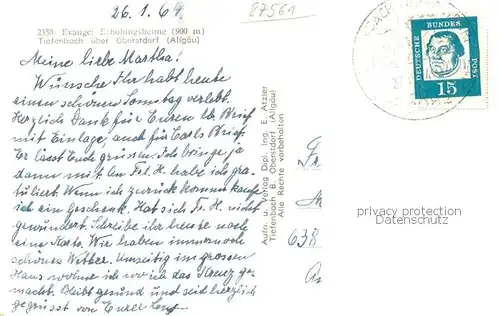 26.1.64
87561
2359 Evangel. Erholungsheime (900 m)
Tiefenbach über Oberstdorf (Allgäu)
Meine liebe Martha!
Wünsche Ihr habt heute
einen schönen Sonntag verlebt.
Herzlich Dank für Euren lb. Brief
mit Einlage, auch für Carls Brief.
Er lässt Euch grüssen. Ich bringe ja
dann mit den Frl. H. habe ich gra-
tuliert. Wenn ich zurück komme kaufe
ich ein Geschenk. Hat sich Fr. H. nicht
gewundert. Schreibe ihr heute noch
eine Karte. Wir haben immernoch
schönes Wetter. Umseitig im grossen
Haus wohne ich wo ich das Kreuz ge-
macht. Bleibt gesund und seid herzlich
gegrüsst von Eurer
Aufn. u. Verlag Dipl. Ing. E. Atzler
Tiefenbach B. Oberstdorf (Allgäu)
Alle Rechte vorbehalten
DEUTSCHE
BUNDES
POST
15
638
privacy protection
Datenschutz